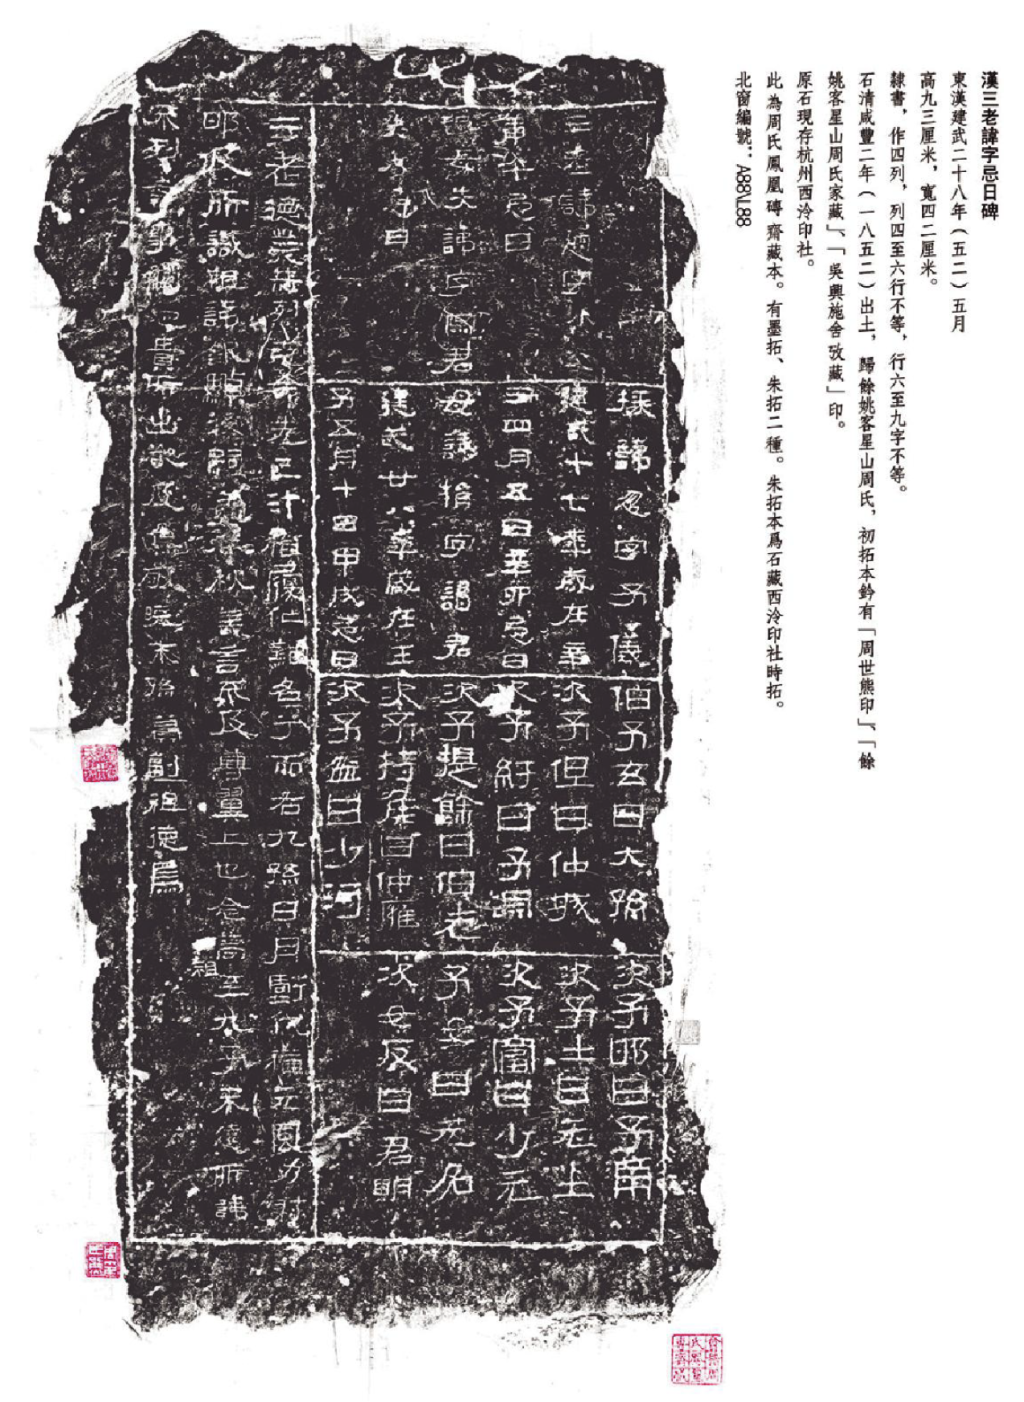 漢三老諱字忌日碑
東漢建武二十八年（五二）五月
高九三厘米，寬四二厘米。
隸書，作四列，列四至六行不等，行六至九字不等。
石清咸豐二年（一八五二）出土，歸餘姚客星山周氏，初拓本鈐有「周世熊印」、「餘
姚客星山周氏家藏」、「吳興施舍攷藏」印。
原石現存杭州西泠印社。
此為周氏鳳凰磚齋藏本。有墨拓、朱拓二種。朱拓本爲石藏西泠印社時拓。
北窗編號：A88\L88
三老諱通字小父
庚午忌日
祖母失諱字宗君
癸未忌日
掾諱忽字子儀
建武十七年歲在辛
丑四月五日辛卯忌日
母諱捐字謁君
建武廿八年歲在壬
子五月十四甲戌忌日
伯子玄曰大孫
次子但曰仲城
次子紆曰子淵
次子提餘曰伯老
次子持侯曰仲雍
次子盆曰少河
次子邯曰子南
次子士曰元士
次子富曰少元
子女曰无名
次女反曰君明
三老德業赫烈克命先己汁稽履仁難名兮而右九孫日月虧代猶元風力射
邯及所識祖諱欽顯後嗣蓋春秋義言不及尊翼上也念高祖至九子未遠所諱
不列言事觸忌貴所出嚴及焦敬曉末孫冀副祖德焉